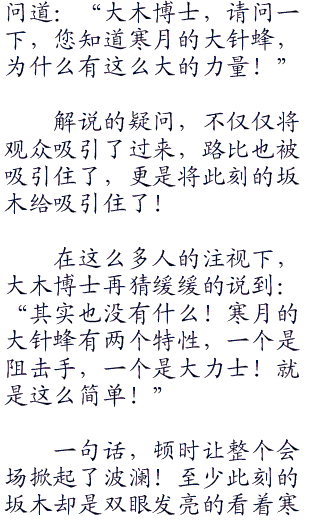 问道：“大木博士，请问一
下，您知道寒月的大针蜂，
为什么有这么大的力量！”
解说的疑问，不仅仅将
观众吸引了过来，路比也被
吸引住了，更是将此刻的坂
木给吸引住了！
在这么多人的注视下，
大木博士再猜缓缓的说到：
“其实也没有什么！寒月的
大针蜂有两个特性，一个是
阻击手，一个是大力士！就
是这么简单！”
一句话，顿时让整个会
场掀起了波澜！至少此刻的
坂木却是双眼发亮的看着寒